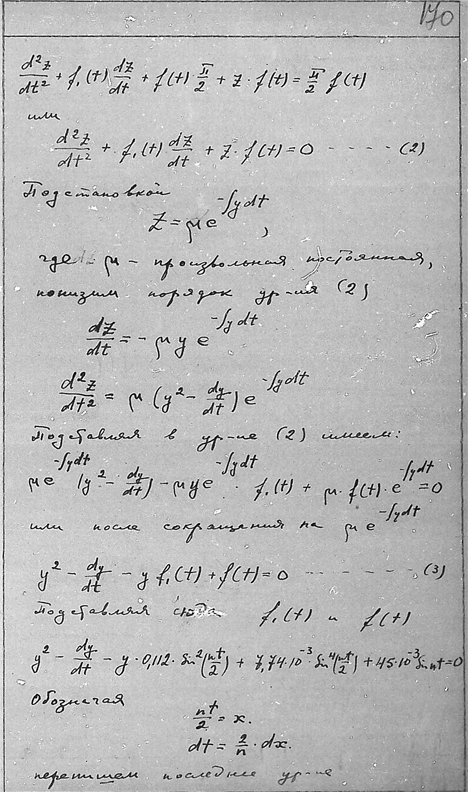 170
d²z/dt² + f₁(t) dz/dt + f(t)·π/2 + z·f(t) = π/2 f(t)
или
d²z/dt² + f₁(t) dz/dt + z·f(t) = 0 - - - - (2)
Подстановкой
Z = μe^(-∫ydt),
где μ - произвольная постоянная,
понизим порядок ур-ия (2)
dz/dt = - μ y e^(-∫ydt)
d²z/dt² = μ (y² - dy/dt) e^(-∫ydt)
Подставляя в ур-ие (2) имеем:
μe^(-∫ydt) (y² - dy/dt) - μye^(-∫ydt) · f₁(t) + μ·f(t)·e^(-∫ydt) = 0
или после сокращения на μe^(-∫ydt)
y² - dy/dt - y f₁(t) + f(t) = 0 - - - - - - - (3)
Подставляя сюда f₁(t) и f(t)
y² - dy/dt - y·0,112·Sin²(nt/2) + 7,74·10⁻³·Sin⁴(nt/2) + 45·10⁻³Sin nt = 0
Обозначая
nt/2 = x.
dt = 2/n · dx.
перепишем последнее ур-ие